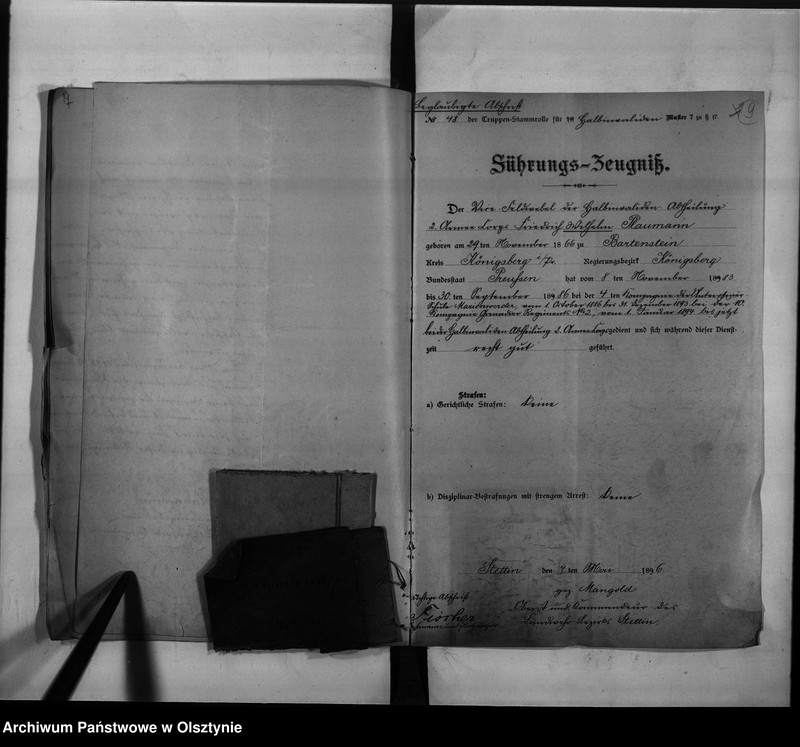 Beglaubigte Abschrift
№ 48 der Truppen-Stammrolle für 18 Halbinvaliden Muster 7 zu § 17.
9
Führungs-Zeugniß.
Der Vice-Feldwebel der Halbinvaliden-Abtheilung
2. Armee Corps Friedrich Wilhelm Naumann
geboren am 29 ten November 1866 zu Bartenstein
Kreis Königsberg i/Pr. Regierungsbezirk Königsberg
Bundesstaat Preußen hat vom 8 ten November 1883
bis 30. ten September 1886 bei der 4 ten Kompagnie der Unteroffizier
Schule Marienwerder, vom 1. October 1886 bis 31. Dezember 1893 bei der 10.
Kompagnie Grenadier Regiments No 2, vom 1. Januar 1894 bis jetzt
bei der Halbinvaliden Abtheilung 2. Armee Corps gedient und sich während dieser Dienst-
zeit recht gut geführt.
Strafen:
a) Gerichtliche Strafen: Keine
b) Disziplinar-Bestrafungen mit strengem Arrest: Keine
Stettin den 7 ten Mai 1896.
gez. Mangold
Oberst und Kommandeur des
Landwehr-Bezirks Stettin
Richtige Abschrift
Fischer
Archiwum Państwowe w Olsztynie